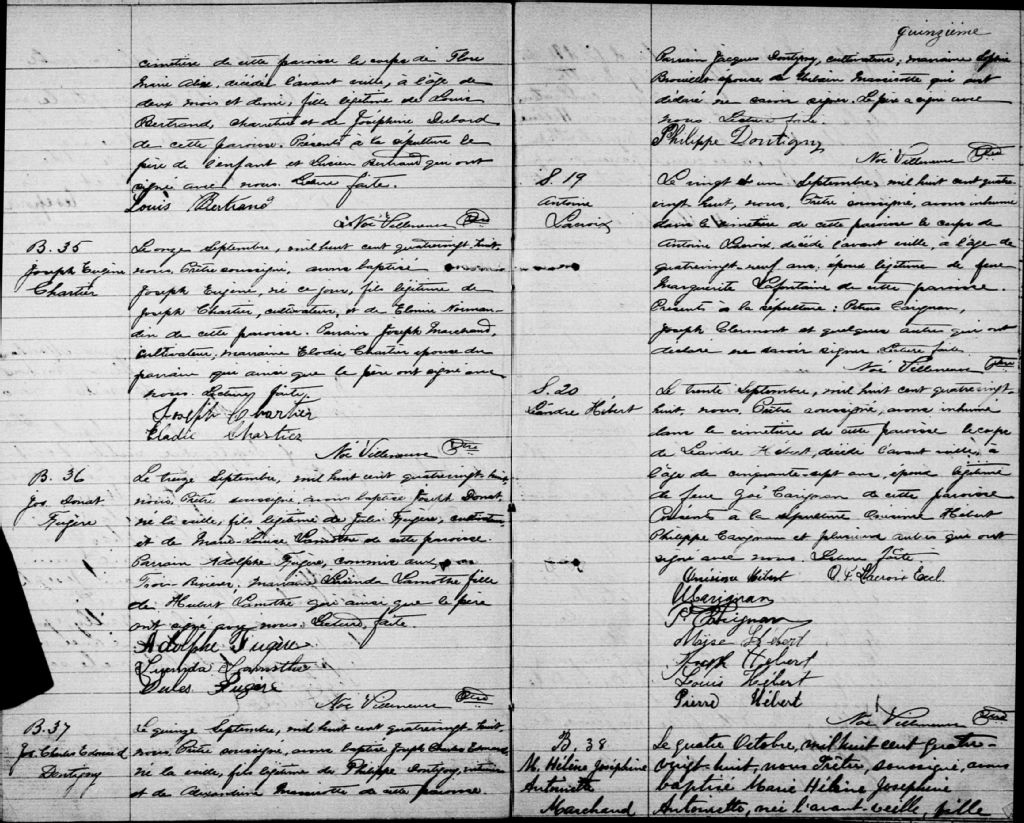 cimetière de cette paroisse le corps de Flore
décédée l'avant veille, à l'âge de
deux mois et demi, fille légitime de Louis
Bertrand, charretier et de Joséphine Dubord
de cette paroisse. Présents à la sépulture le
père de l'enfant et Lucien Bertrand qui ont
signé avec nous. Lecture faite.
Louis Bertrand
Noé Villeneuve Ptre
B. 35
Joseph Eugène
Chartier
Le onze Septembre, mil huit cent quatrevingt-huit,
nous, Prêtre soussigné, avons baptisé
Joseph Eugène, né ce jour, fils légitime de
Joseph Chartier, cultivateur, et de Norman-
din de cette paroisse. Parrain Joseph Marchand,
cultivateur, marraine Elodie Chartier épouse du
parrain qui ainsi que le père ont signé avec
nous. Lecture faite.
Joseph Chartier
Elodie Chartier
Noé Villeneuve Ptre
B. 36
Jos. Donat
Fugère
Le treize Septembre, mil huit cent quatrevingt-huit,
nous, Prêtre soussigné, avons baptisé Joseph Donat,
né la veille, fils légitime de Jules Fugère, cultivateur
et de Marie-Louise Lamothe de cette paroisse.
Parrain Adolphe Fugère, commis aux
Trois-Rivières, marraine Lamothe fille
de Hubert Lamothe qui ainsi que le père
ont signé avec nous. Lecture faite.
Adolphe Fugère
Lamothe
Jules Fugère
Noé Villeneuve Ptre
B. 37
Jos. Charles Edouard
Dontigny
Le quinze Septembre, mil huit cent quatrevingt-huit,
nous, Prêtre soussigné, avons baptisé Joseph Charles Edouard,
né la veille, fils légitime de Philippe Dontigny,
et de Alexandrine Marcotte de cette paroisse
quinzième
Parrain Jacques Dontigny, cultivateur, marraine
épouse de Marcotte qui ont
déclaré ne savoir signer. Le père a signé avec
nous. Lecture faite.
Philippe Dontigny
Noé Villeneuve Ptre
S. 19
Antoine
Lacroix
Le vingt et un Septembre, mil huit cent quatre-
vingt huit, nous, Prêtre soussigné, avons inhumé
dans le cimetière de cette paroisse le corps de
Antoine Lacroix, décédé l'avant veille, à l'âge de
quatrevingt-neuf ans, époux légitime de feue
Marguerite Lafontaine de cette paroisse.
Présents à la sépulture: Petrus Carignan,
Joseph Clermont et quelques autres qui ont
déclaré ne savoir signer. Lecture faite.
Noé Villeneuve Ptre
S. 20
Léandre Hébert
Le trente Septembre, mil huit cent quatrevingt-
huit, nous, Prêtre soussigné, avons inhumé
dans le cimetière de cette paroisse le corps
de Léandre Hébert, décédé l'avant veille, à
l'âge de cinquante-sept ans, époux légitime
de feue Zoé Carignan de cette paroisse
Présents à la sépulture Onésime Hébert
Philippe Carignan et plusieurs autres qui ont
signé avec nous. Lecture faite
Onésime Hébert Lacroix Eccl.
Carignan
P. Carignan
Moïse Hébert
Joseph Hébert
Louis Hébert
Pierre Hébert
Noé Villeneuve Ptre
B. 38
M. Hélène Joséphine
Antoinette
Marchand
Le quatre Octobre, mil huit cent quatre-
vingt-huit, nous Prêtre, soussigné, avons
baptisé Marie Hélène Joséphine
Antoinette, née l'avant-veille, fille